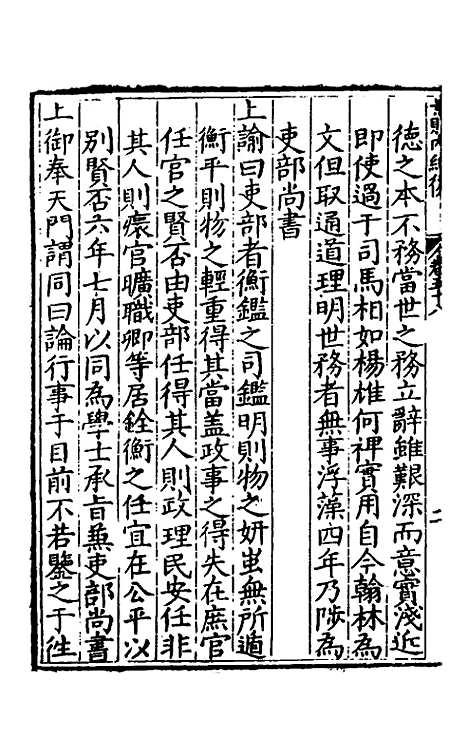 德之本不務當世之務立辭雖艱深而意實淺近
即使過于司馬相如楊雄何裨實用自今翰林為
文但取通道理明世務者無事浮藻四年乃陟為
吏部尚書
上諭曰吏部者衡鑑之司鑑明則物之妍蚩無所遁
衡平則物之輕重得其當盖政事之得失在庶官
任官之賢否由吏部任得其人則政理民安任非
其人則瘝官曠職卿等居銓衡之任宜在公平以
別賢否六年七月以同為學士承旨兼吏部尚書
上御奉天門謂同曰論行事于目前不若鑒之于徃